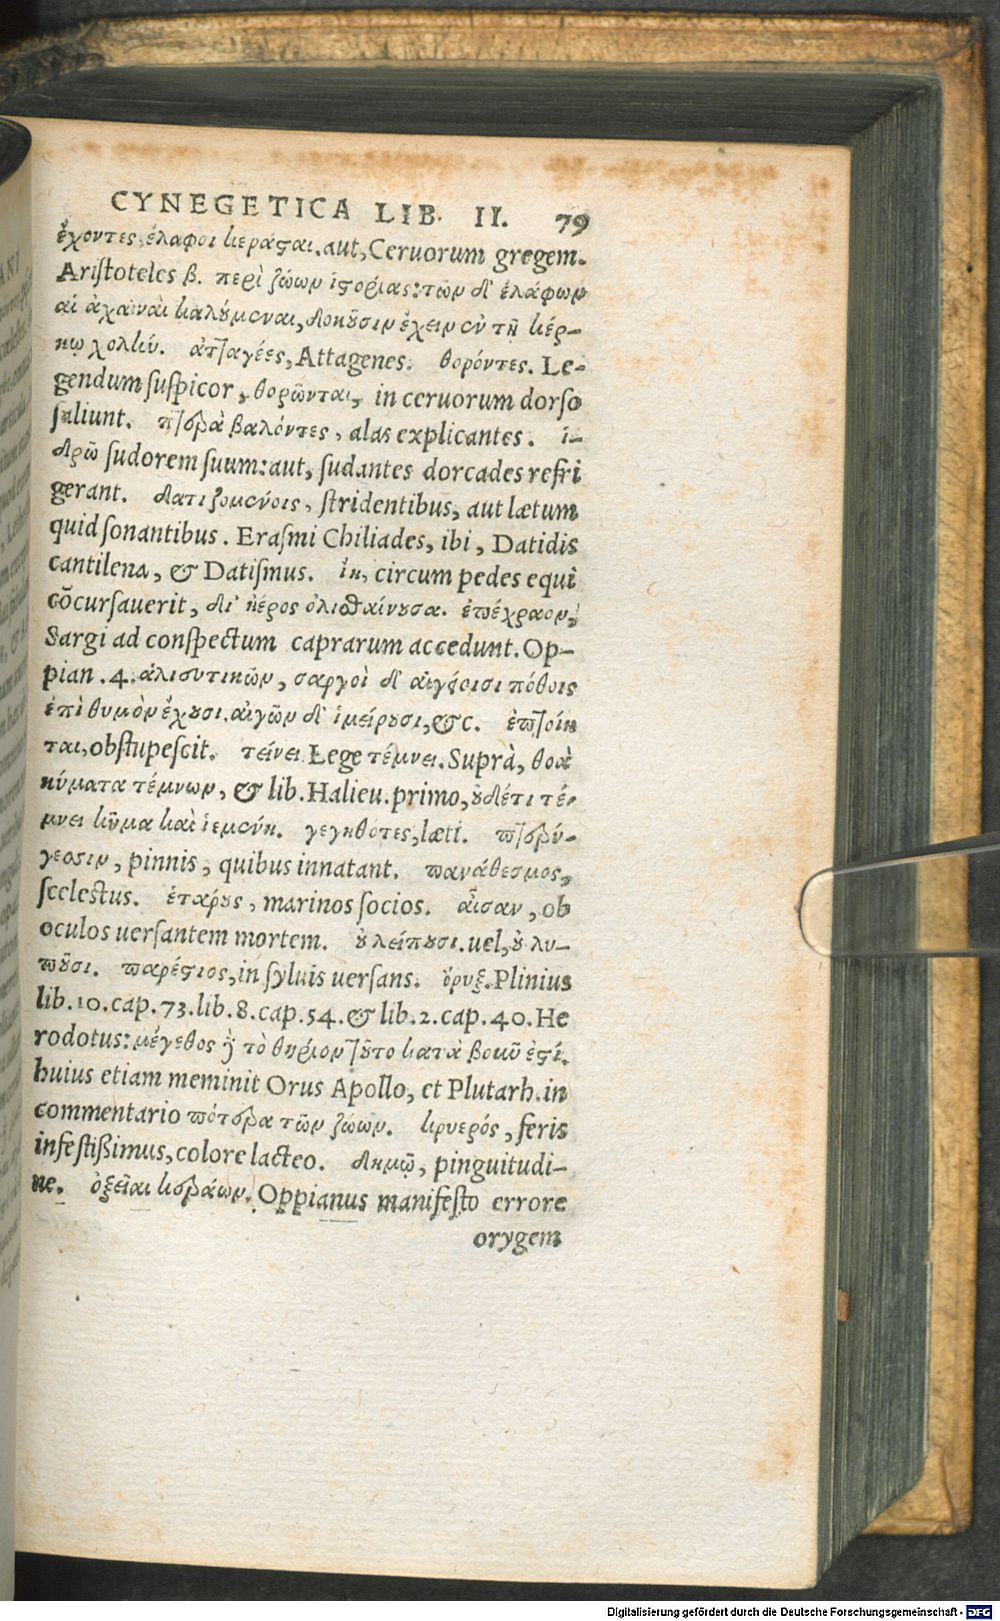 CYNEGETICA LIB. II. 79
ἔχοντες, ἐλαφοι κεράςαι. aut, Ceruorum gregem.
Ariſtoteles β. περὶ ζώων ἱςορίας: τῶν δ' ἐλάφων
αἱ ἀχαιναὶ καλούμεναι, δοκοῦσιν ἔχειν ἐν τῇ κέρ-
κῳ χολὴν. ἀτταγέες, Attagenes. θορόντες. Le-
gendum ſuſpicor, θορῶνται, in ceruorum dorſo
ſaliunt. πτερὰ βαλόντες, alas explicantes. ἱ-
δρῶ ſudorem ſuum: aut, ſudantes dorcades refri
gerant. δατιζομένοις, ſtridentibus, aut lætum
quid ſonantibus. Eraſmi Chiliades, ibi, Datidis
cantilena, & Datiſmus. circum pedes equi
cōcurſauerit, δι' ἠέρος ὀλιοθαίνουσα. ἐπέχραον,
Sargi ad conſpectum caprarum accedunt. Op-
pian. 4. ἁλιευτικῶν, σαργοὶ δ' αἰγείοισι πόθοις
ἐπὶ θυμὸν ἔχουσι. αἰγῶν δ' ἱμείρουσι, &c. ἐπτοίη
ται, obſtupeſcit. τείνει. Lege τέμνει. Suprà, θοὰ
κύματα τέμνων, & lib. Halieu. primo, οὐδέτι τέ-
μνει κῦμα καὶ ἱεμένη. γεγηθοτες, læti. πτερύ-
γεσσιν, pinnis, quibus innatant. πανάθεσμος,
ſceleſtus. ἑταίρους, marinos ſocios. αἶσαν, ob
oculos uerſantem mortem. οὐ λείπουσι. uel, οὐ λυ-
ποῦσι. παρέςιος, in ſyluis uerſans. ὄρυξ. Plinius
lib. 10. cap. 73. lib. 8. cap. 54. & lib. 2. cap. 40. He
rodotus: μέγεθος δὲ τὸ θηρίον τοῦτο κατὰ βοῦν ἐςί.
huius etiam meminit Orus Apollo, et Plutarh. in
commentario πότερα τῶν ζώων. κρυερός, feris
infeſtißimus, colore lacteo. δημῷ, pinguitudi-
ne. ὀξεῖαι κεράων. Oppianus manifeſto errore
orygem
Digitalisierung gefördert durch die Deutsche Forschungsgemeinschaft - DFG